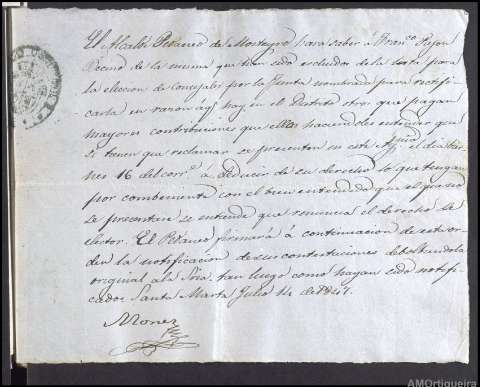 El Alcalde Pedaneo de Monteojo hara saber á Franco. Pajon
Vecino de la misma que han sido escluidos de la lista para
la eleccion de Concejales por la Junta nombrada para rectifi-
carla en razón á qe. hay en el Distrito otros que pagan
mayores contribuciones que ellos haciendoles entender que
si tienen que reclamar se presenten en este Aynto. el dia
nes 16 del corrte. á deducir de su derecho lo que tengan
por combeniente con el bien entendido que el que no
se presentare se entiende que renuncia el derecho de
elector. El Pedaneo firmará á continuacion de esta or-
den la notificacion de sus contestaciones debolbiendola
original á la Sria. tan luego como hayan sido notifi-
cados Santa Marta Julio 14 de 1847.
AMOrtigueira